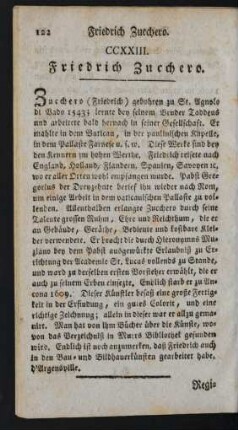 122 Friedrich Zucchero.
CCXXIII.
Friedrich Zucchero.
Zucchero (Friedrich) gebohren zu St. Agnolo
di Vado 1543; lernte bey seinem Bruder Taddeus
und arbeitete bald hernach in seiner Gesellschaft. Er
mahlte in dem Vatican, in der paulinischen Kapelle,
in dem Pallaste Farnese u. s. w. Diese Werke sind bey
den Kennern im hohen Werthe. Friedrich reisete nach
England, Holland, Flandern, Spanien, Savoyen ꝛc.
wo er aller Orten wohl empfangen wurde. Pabst Gre-
gorius der Dreyzehnte berief ihn wieder nach Rom,
um einige Arbeit in dem vaticanischen Pallaste zu vol-
lenden. Allenthalben erlangte Zucchero durch seine
Talente grossen Ruhm, Ehre und Reichthum, die er
an Gebäude, Geräthe, Bediente und kostbare Klei-
der verwendete. Er bracht die durch Hieronymus Mu-
zian bey dem Pabst ausgewürkte Erlaubniß zu Er-
richtung der Academie St. Lucas vollends zu Stande,
und ward zu derselben ersten Vorsteher erwählt, die er
auch zu seinem Erben einsetzte. Endlich starb er zu An-
cona 1609. Dieser Künstler besaß eine große Fertig-
keit in der Erfindung, ein gutes Colorit, und eine
richtige Zeichnung; allein in dieser war er allzu gema-
nirt. Man hat von ihm Bücher über die Künste, wo-
von das Verzeichniß in Murrs Bibliothek gefunden
wird. Endlich ist noch anzumerken, daß Friedrich auch
in den Bau- und Bildhauerkünsten gearbeitet habe.
d'Argensville.
Regi-